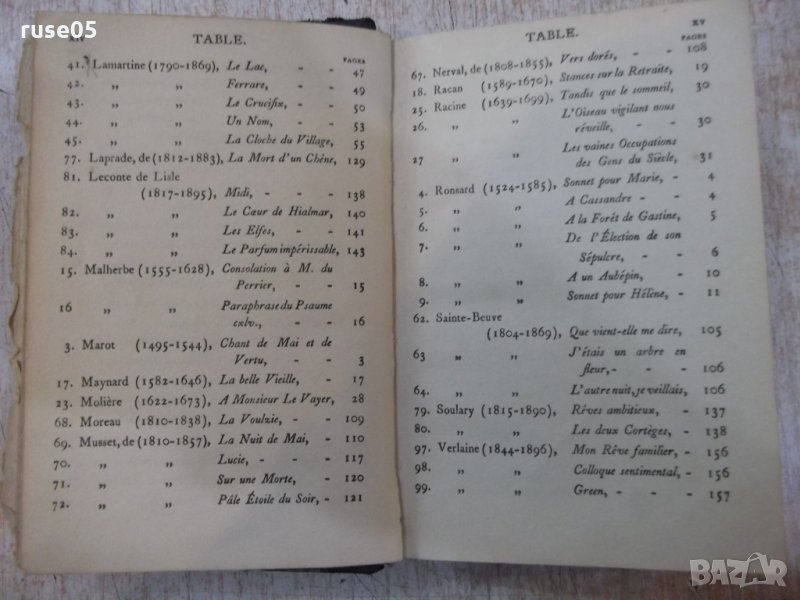 ruse05
TABLE.
PAGES
41. Lamartine (1790-1869), Le Lac, - - 47
42. „ „ Ferrare, - - 49
43. „ „ Le Crucifix, - - 50
44. „ „ Un Nom, - - 53
45. „ „ La Cloche du Village, 55
77. Laprade, de (1812-1883), La Mort d'un Chêne, 129
81. Leconte de Lisle
(1817-1895), Midi, - - - 138
82. „ „ Le Cœur de Hialmar, 140
83. „ „ Les Elfes, - - 141
84. „ „ Le Parfum impérissable, 143
15. Malherbe (1555-1628), Consolation à M. du
Perrier, - - 15
16 „ „ Paraphrase du Psaume
cxlv., - - - 16
3. Marot (1495-1544), Chant de Mai et de
Vertu, - - 3
17. Maynard (1582-1646), La belle Vieille, - 17
23. Molière (1622-1673), A Monsieur Le Vayer, 28
68. Moreau (1810-1838), La Voulzie, - - 109
69. Musset, de (1810-1857), La Nuit de Mai, - 110
70. „ „ Lucie, - - - 117
71. „ „ Sur une Morte, - 120
72. „ „ Pâle Étoile du Soir, - 121
TABLE.
xv
PAGES
67. Nerval, de (1808-1855), Vers dorés, - - 108
18. Racan (1589-1670), Stances sur la Retraite, 19
25. Racine (1639-1699), Tandis que le sommeil, 30
26. „ „ L'Oiseau vigilant nous
réveille, - - 30
27 „ „ Les vaines Occupations
des Gens du Siècle, 31
4. Ronsard (1524-1585), Sonnet pour Marie, - 4
5. „ „ A Cassandre - - 4
6. „ „ A la Forêt de Gastine, 5
7. „ „ De l'Élection de son
Sépulcre, - - 6
8. „ „ A un Aubépin, - 10
9. „ „ Sonnet pour Hélène, - 11
62. Sainte-Beuve
(1804-1869), Que vient-elle me dire, 105
63 „ „ J'étais un arbre en
fleur, - - - 106
64. „ „ L'autre nuit, je veillais, 106
79. Soulary (1815-1890), Rêves ambitieux, - 137
80. „ „ Les deux Cortèges, - 138
97. Verlaine (1844-1896), Mon Rêve familier, - 156
98. „ „ Colloque sentimental, - 156
99. „ „ Green, - - - 157
BAZAR
bazar.bg